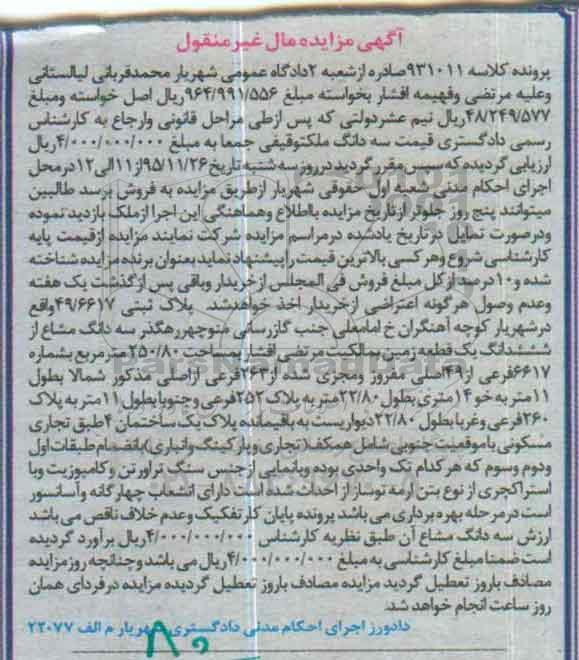 آگهی مزایده مال غیر منقول
پرونده کلاسه ۹۳۱۰۱۱ صادره از شعبه ۲ دادگاه عمومی شهریار محمدقربانی لیالستانی
وعلیه مرتضی وفهیمه افشار بخواسته مبلغ ۹۶۴/۹۹۱/۵۵۶ ریال اصل خواسته ومبلغ
۴۸/۲۴۹/۵۷۷ ریال نیم عشردولتی که پس ازطی مراحل قانونی وارجاع به کارشناس
رسمی دادگستری قیمت سه دانگ ملک توقیفی جمعا به مبلغ ۴/۰۰۰/۰۰۰/۰۰۰ ریال
ارزیابی گردیده که سپس مقرر گردید درروز سه شنبه تاریخ ۹۵/۱۱/۲۶ از ۱۱الی ۱۲ درمحل
اجرای احکام مدنی شعبه اول حقوقی شهریار ازطریق مزایده به فروش برسد طالبین
میتوانند پنج روز جلوتر ازتاریخ مزایده بااطلاع وهماهنگی این اجرا ازملک بازدید نموده
ودرصورت تمایل درتاریخ یادشده درمراسم مزایده شرکت نمایند مزایده ازقیمت پایه
کارشناسی شروع وهرکسی بالاترین قیمت راپیشنهاد نماید بعنوان برنده مزایده شناخته
شده و۱۰درصد ازکل مبلغ فروش فی المجلس ازخریدار وباقی پس ازگذشت یک هفته
وعدم وصول هرگونه اعتراضی ازخریدار اخذ خواهدشد. پلاک ثبتی ۴۹/۶۶۱۷ واقع
درشهریار کوچه آهنگران خ امامعلی جنب گازرسانی منوچهررهگذر سه دانگ مشاع از
ششدانگ یک قطعه زمین بمالکیت مرتضی افشار بمساحت ۲۵۰/۸۰ مترمربع بشماره
۶۶۱۷ فرعی از ۴۹ اصلی مفروز ومجزی شده از ۲۶۳ فرعی ازاصلی مذکور شمالا بطول
۱۱متر به خو ۱۴ متری بطول ۲۲/۸۰ متر به پلاک ۲۵۲ فرعی وجنوبا بطول ۱۱متر به پلاک
۲۶۰ فرعی وغربا بطول ۲۲/۸۰ دیواریست به باقیمانده پلاک یک ساختمان ۴طبق تجاری
مسکونی باموقعیت جنوبی شامل همکف( تجاری و پارکینگ وانباری)بانضمام طبقات اول
ودوم وسوم که هرکدام تک واحدی بوده وبانمایی ازجنس سنگ تراورتن وکامپوزیت وبا
استراکچری از نوع بتن آرمه نوساز از احداث شده است دارای انشعاب چهارگانه وآسانسور
است درمرحله بهره برداری می باشد پرونده پایان کارتفکیک وعدم خلاف ناقص می باشد
ارزش سه دانگ مشاع آن طبق نظریه کارشناس ۴/۰۰۰/۰۰۰/۰۰۰ ریال برآورد گردیده
است ضمنا مبلغ کارشناسی به مبلغ ۴/۰۰۰/۰۰۰/۰۰۰ ریال می باشد وچنانچه روز مزایده
مصادف باروز تعطیل گردید مزایده مصادف باروز تعطیل گردیده مزایده درفردای همان
روز ساعت انجام خواهد شد.
دادورز اجرای احکام مدنی دادگستری شهریار م الف ۲۲۰۷۷